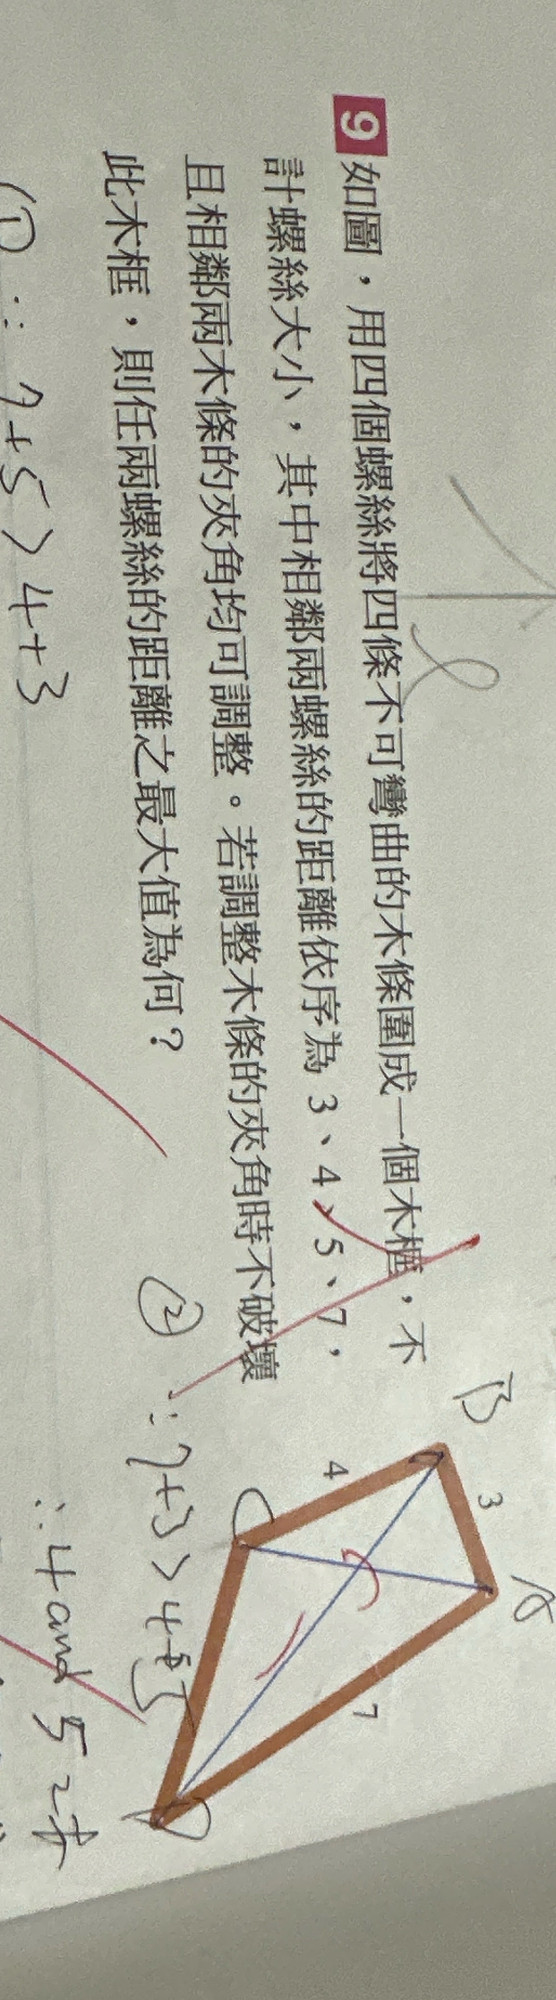 9 如圖，用四個螺絲將四條不可彎曲的木條圍成一個木框，不
計螺絲大小，其中相鄰兩螺絲的距離依序為 3、4、5、7，
且相鄰兩木條的夾角均可調整。若調整木條的夾角時不破壞
此木框，則任兩螺絲的距離之最大值為何？
B
3
A
4
C
7
D
① ∵ 7+5 > 4+3
② ∵ 7+3 > 4+5
∴ 4 and 5